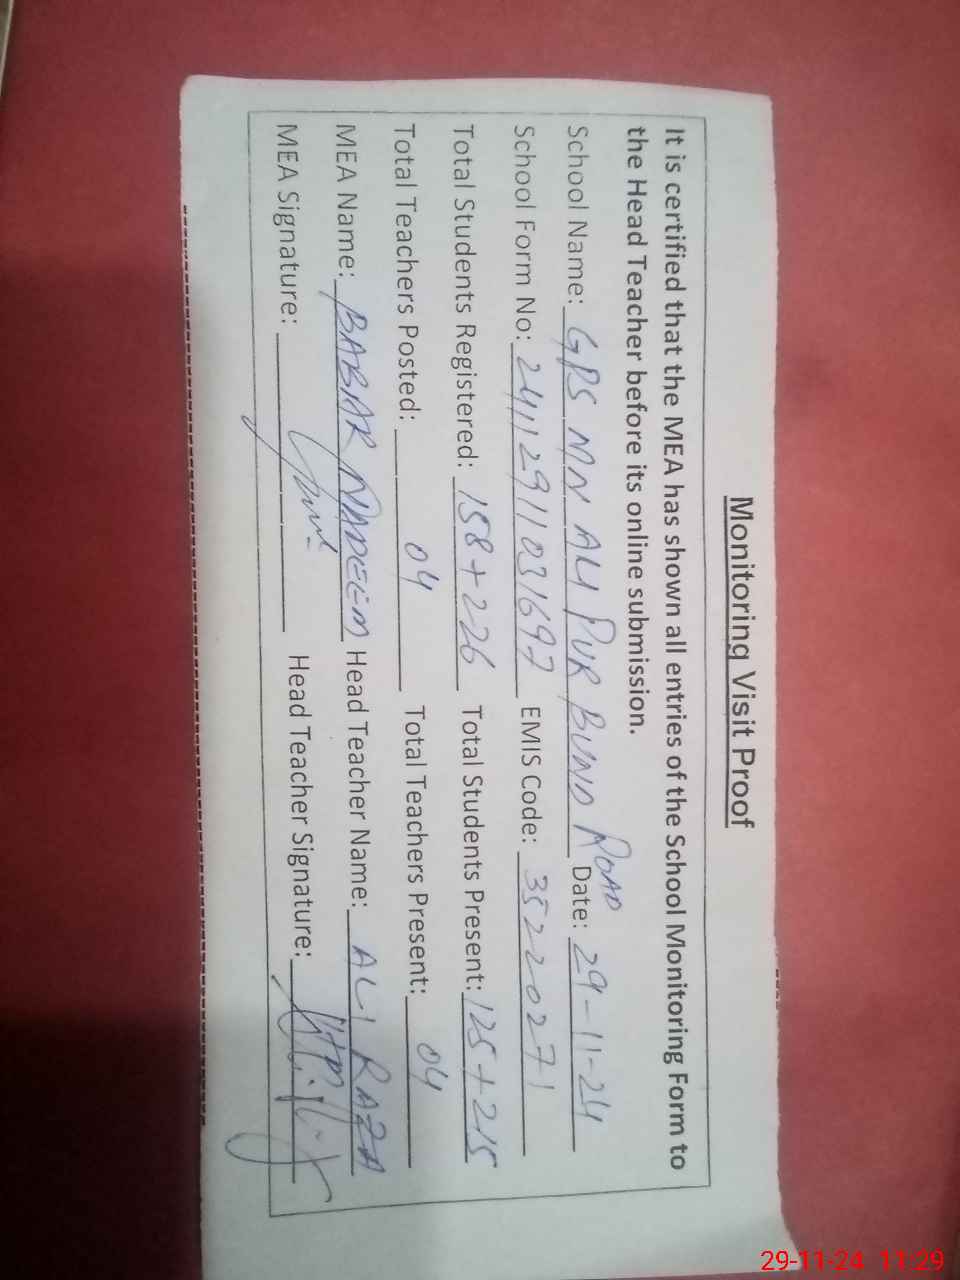 Monitoring Visit Proof
It is certified that the MEA has shown all entries of the School Monitoring Form to
the Head Teacher before its online submission.
School Name: GPS MN ALI PUR BUND ROAD Date: 29-11-24
School Form No: 24112911031697 EMIS Code: 35220271
Total Students Registered: 158+226 Total Students Present: 125+215
Total Teachers Posted: 04 Total Teachers Present: 04
MEA Name: BABAR NADEEM Head Teacher Name: ALI RAZA
MEA Signature: Head Teacher Signature:
29-11-24 11:29